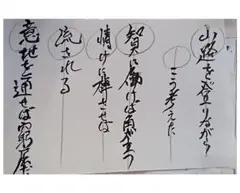 山路を登りながら
こう考えた
智に働けば角が立つ
情けに棹させば
流される
意地を通せば窮屈だ